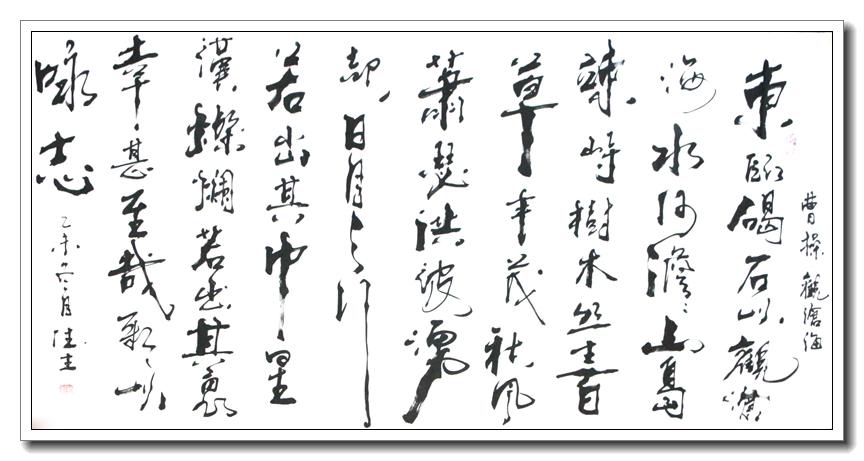 曹操 觀滄海
東臨碣石以觀滄
海水何澹〻山島
竦峙樹木丛生百
草丰茂秋風
蕭瑟洪波湧
起日月之行
若出其中星
漢燦爛若出其裏
幸甚至哉歌以
詠志
乙未冬月